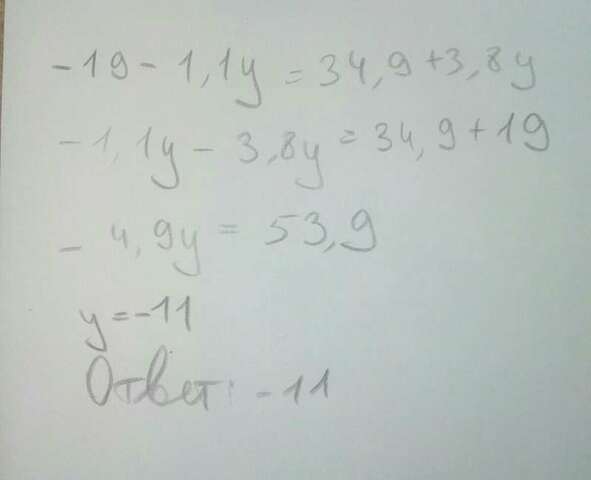 -19 - 1,1y = 34,9 + 3,8y
-1,1y - 3,8y = 34,9 + 19
- 4,9y = 53,9
y = -11
Ответ: -11